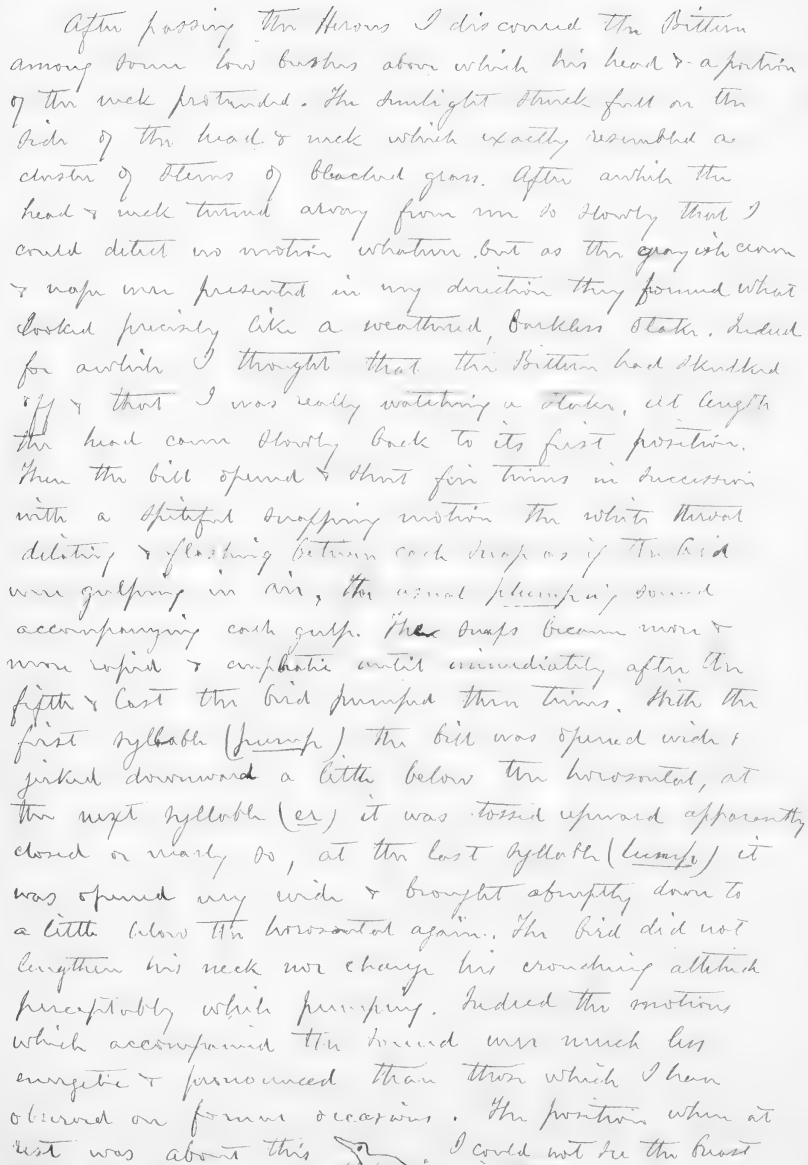 After passing the Herons I discovered the Bittern
among some low bushes above which his head & a portion
of the neck protruded. The sunlight struck full on the
side of the head & neck which exactly resembled a
cluster of stems of bleached grass. After awhile the
head & neck turned away from me so slowly that I
could detect no motion whatever but as the grayish crown
& nape were presented in my direction they formed what
looked precisely like a weathered, barkless stake. Indeed
for awhile I thought that the Bittern had skulked
off & that I was really watching a stake. At length
the head came slowly back to its first position.
Then the bill opened & shut five times in succession
with a spiteful snapping motion the white throat
dilating & flashing between each snap as if the bird
were gulping in air, the usual plumping sound
accompanying each gulp. The snaps became more &
more rapid & emphatic until immediately after the
fifth & last the bird pumped three times. With the
first syllable (pump) the bill was opened wide &
jerked downward a little below the horosontal, at
the next syllable (er) it was tossed upward apparently
closed or nearly so, at the last syllable (lump) it
was opened very wide & brought abruptly down to
a little below the horosontal again. The bird did not
lengthen his neck nor change his crouching attitude
perceptably while pumping. Indeed the motions
which accompanied the sound were much less
energetic & pronounced than those which I have
observed on former occasions. The position when at
rest was about this . I could not see the breast